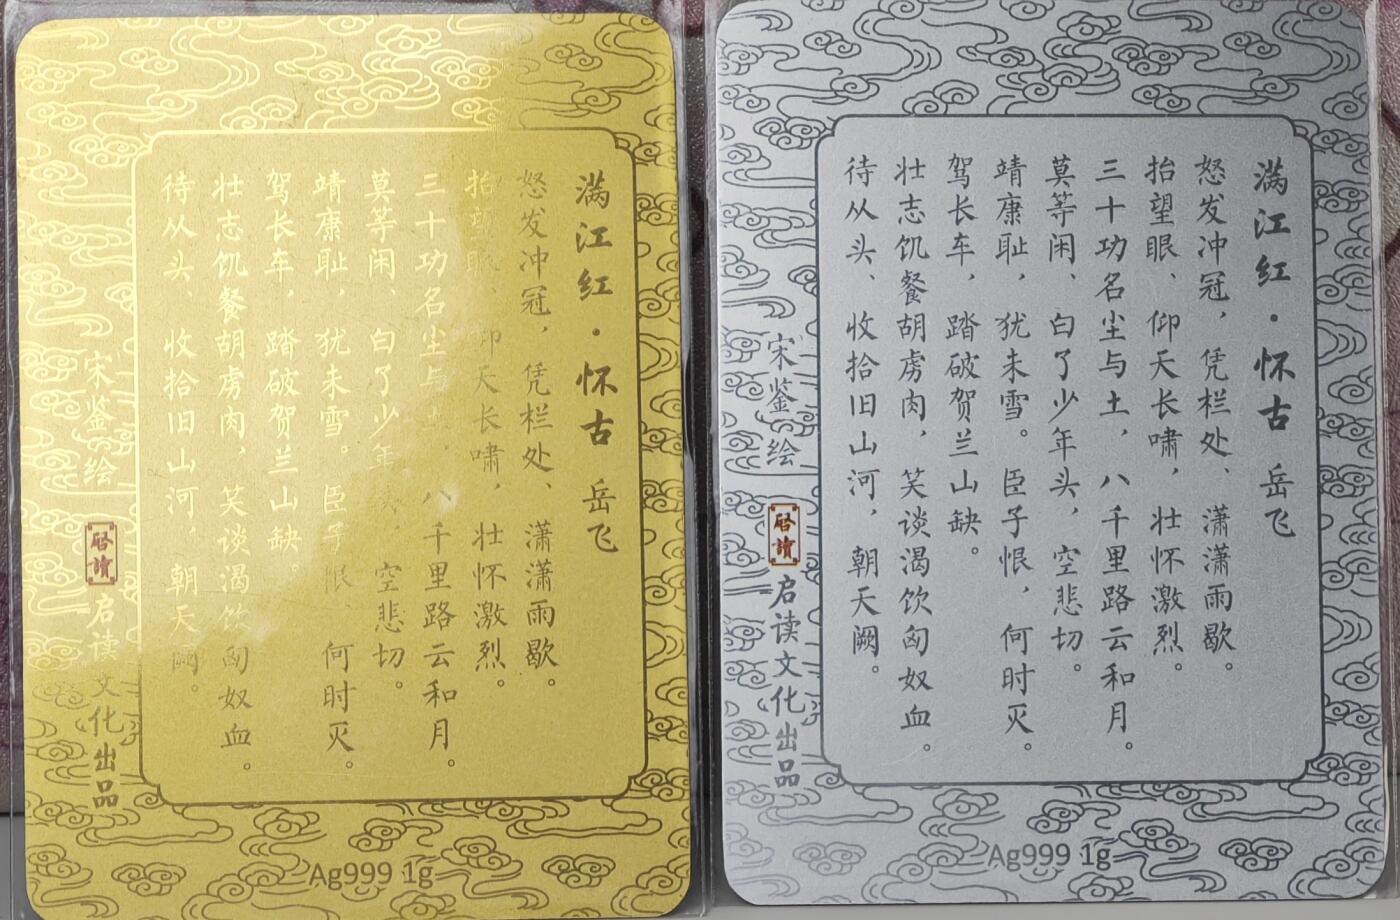 满江红·怀古 岳飞
怒发冲冠，凭栏处、潇潇雨歇。
抬望眼、仰天长啸，壮怀激烈。
三十功名尘与土，八千里路云和月。
莫等闲、白了少年头，空悲切。
靖康耻，犹未雪。臣子恨，何时灭。
驾长车，踏破贺兰山缺。
壮志饥餐胡虏肉，笑谈渴饮匈奴血。
待从头、收拾旧山河，朝天阙。
宋鉴绘
啓讀
启读文化出品
Ag999 1g
满江红·怀古 岳飞
怒发冲冠，凭栏处、潇潇雨歇。
抬望眼、仰天长啸，壮怀激烈。
三十功名尘与土，八千里路云和月。
莫等闲、白了少年头，空悲切。
靖康耻，犹未雪。臣子恨，何时灭。
驾长车，踏破贺兰山缺。
壮志饥餐胡虏肉，笑谈渴饮匈奴血。
待从头、收拾旧山河，朝天阙。
宋鉴绘
啓讀
启读文化出品
Ag999 1g